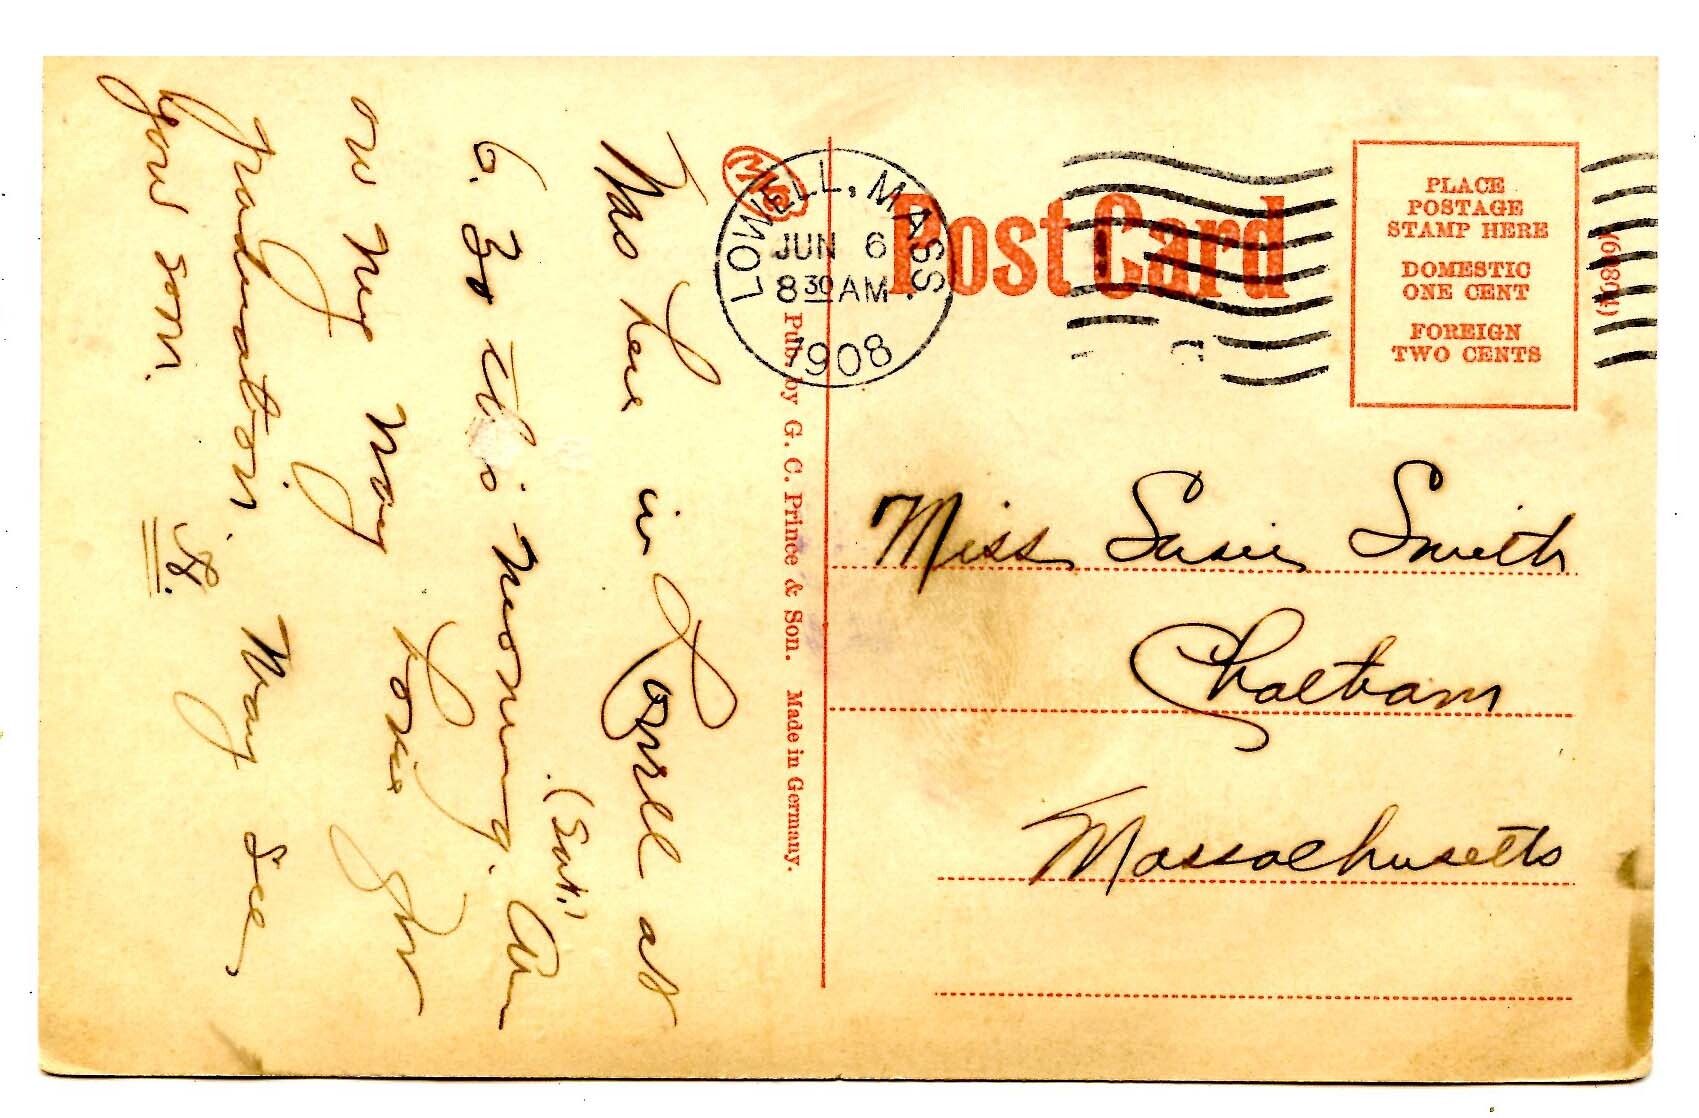 Was here in Lowell at
6.30 this morning. Am
(Sat.)
on my way home for
graduation. May see
you soon.
H.
Pub. by G. C. Prince & Son. Made in Germany.
LOWELL, MASS.
JUN 6
8 30 AM
1908
Post Card
PLACE
POSTAGE
STAMP HERE
DOMESTIC
ONE CENT
FOREIGN
TWO CENTS
Miss Susie Smith
Chatham
Massachusetts